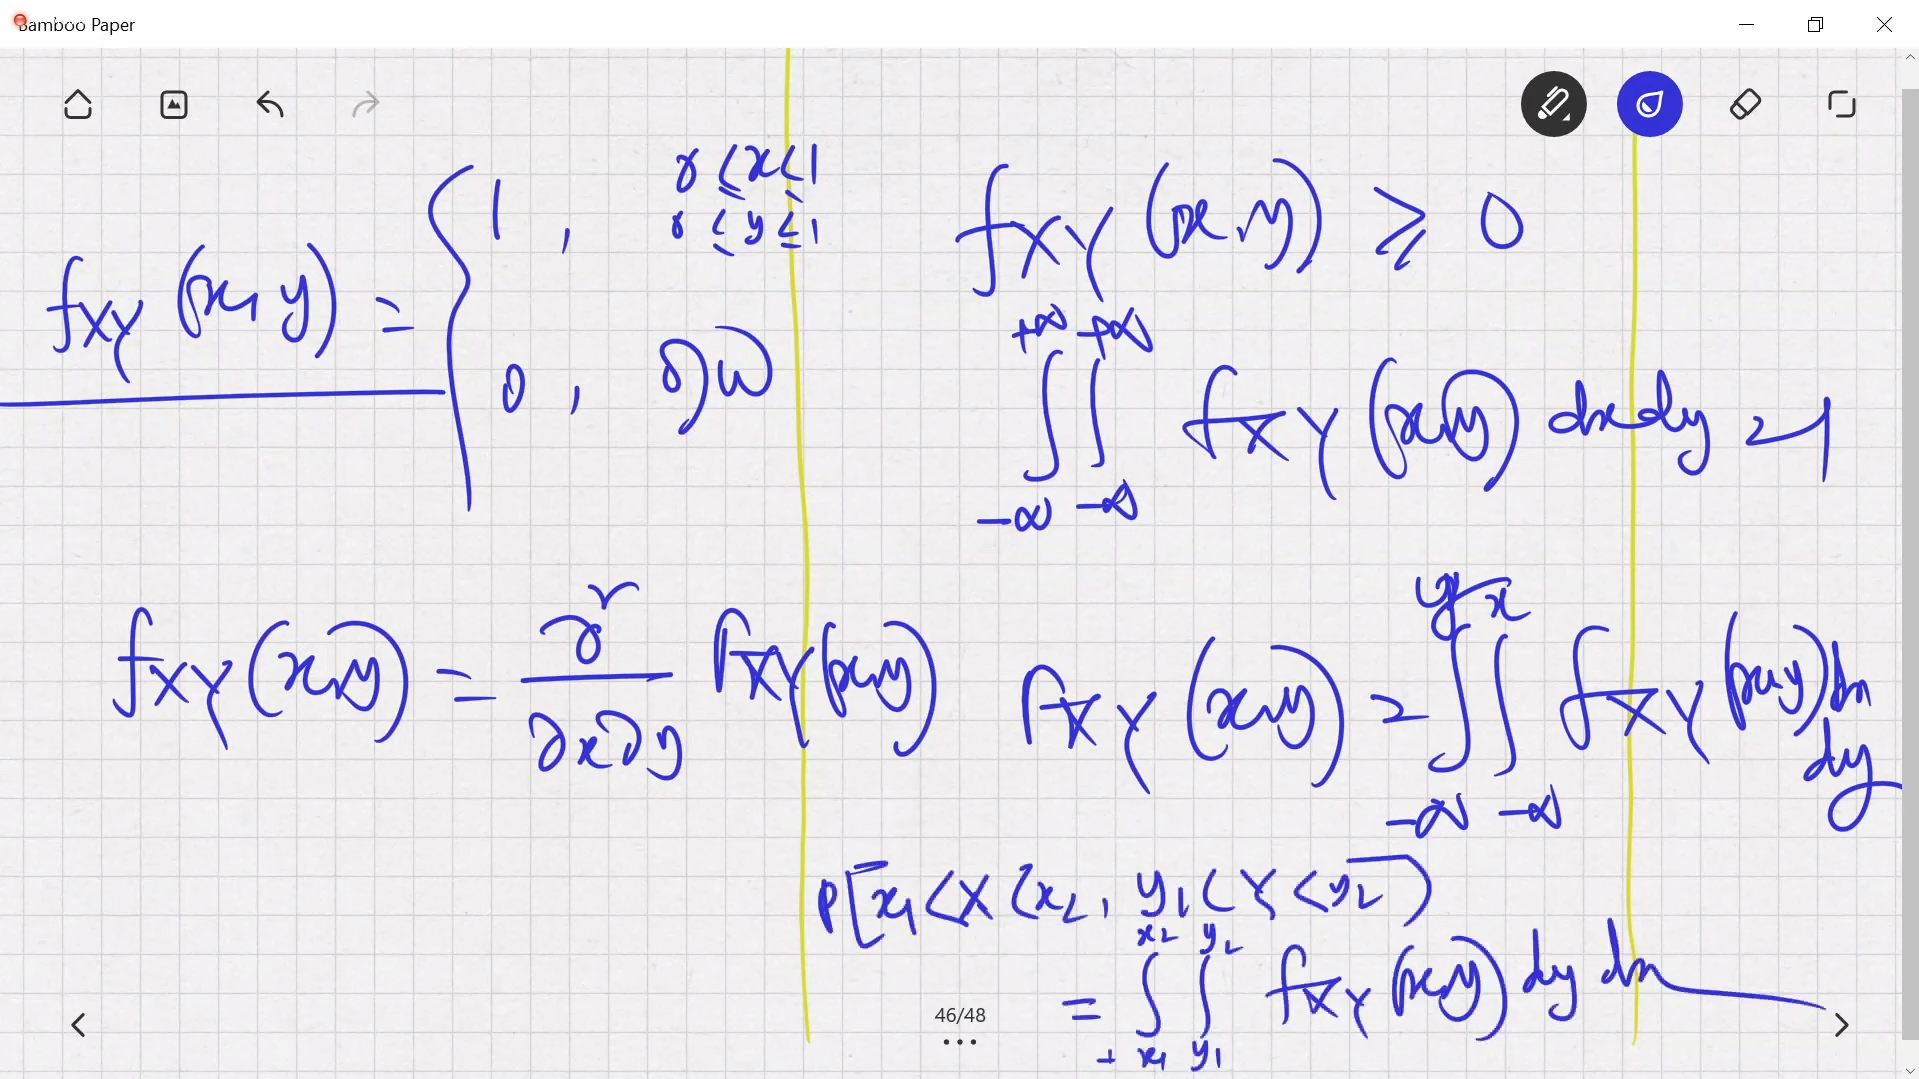 Bamboo Paper
f_XY (x, y) = { 1 , 0 ≤ x ≤ 1
0 ≤ y ≤ 1
0 , OW
f_XY (x, y) ≥ 0
∫_{-∞}^{+∞} ∫_{-∞}^{+∞} f_XY (x, y) dx dy = 1
f_XY (x, y) = ∂² / ∂x∂y F_XY (x, y)
F_XY (x, y) = ∫_{-∞}^{y} ∫_{-∞}^{x} f_XY (x, y) dx dy
P[x1 < X < x2, y1 < Y < y2)
= ∫_{x1}^{x2} ∫_{y1}^{y2} f_XY (x, y) dy dx
46/48